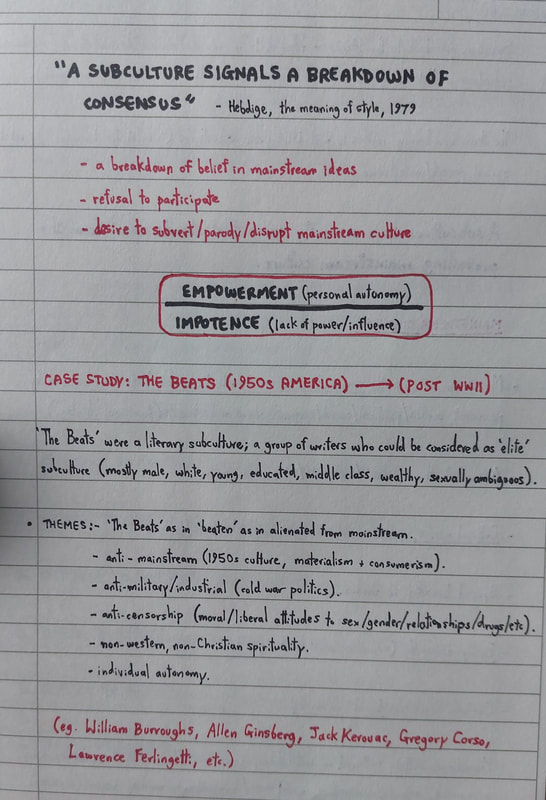 "A SUBCULTURE SIGNALS A BREAKDOWN OF
CONSENSUS" - Hebdige, the meaning of style, 1979
- a breakdown of belief in mainstream ideas
- refusal to participate
- desire to subvert/parody/disrupt mainstream culture
EMPOWERMENT (personal autonomy)
IMPOTENCE (lack of power/influence)
CASE STUDY: THE BEATS (1950s AMERICA) → (POST WWII)
'The Beats' were a literary subculture; a group of writers who could be considered as 'elite'
subculture (mostly male, white, young, educated, middle class, wealthy, sexually ambiguous).
• THEMES:- 'The Beats' as in 'beaten' as in alienated from mainstream.
- anti-mainstream (1950s culture, materialism + consumerism).
- anti-military/industrial (cold war politics).
- anti-censorship (moral/liberal attitudes to sex/gender/relationships/drugs/etc).
- non-western, non-Christian spirituality.
- individual autonomy.
(eg. William Burroughs, Allen Ginsberg, Jack Kerouac, Gregory Corso,
Lawrence Ferlingetti, etc.)